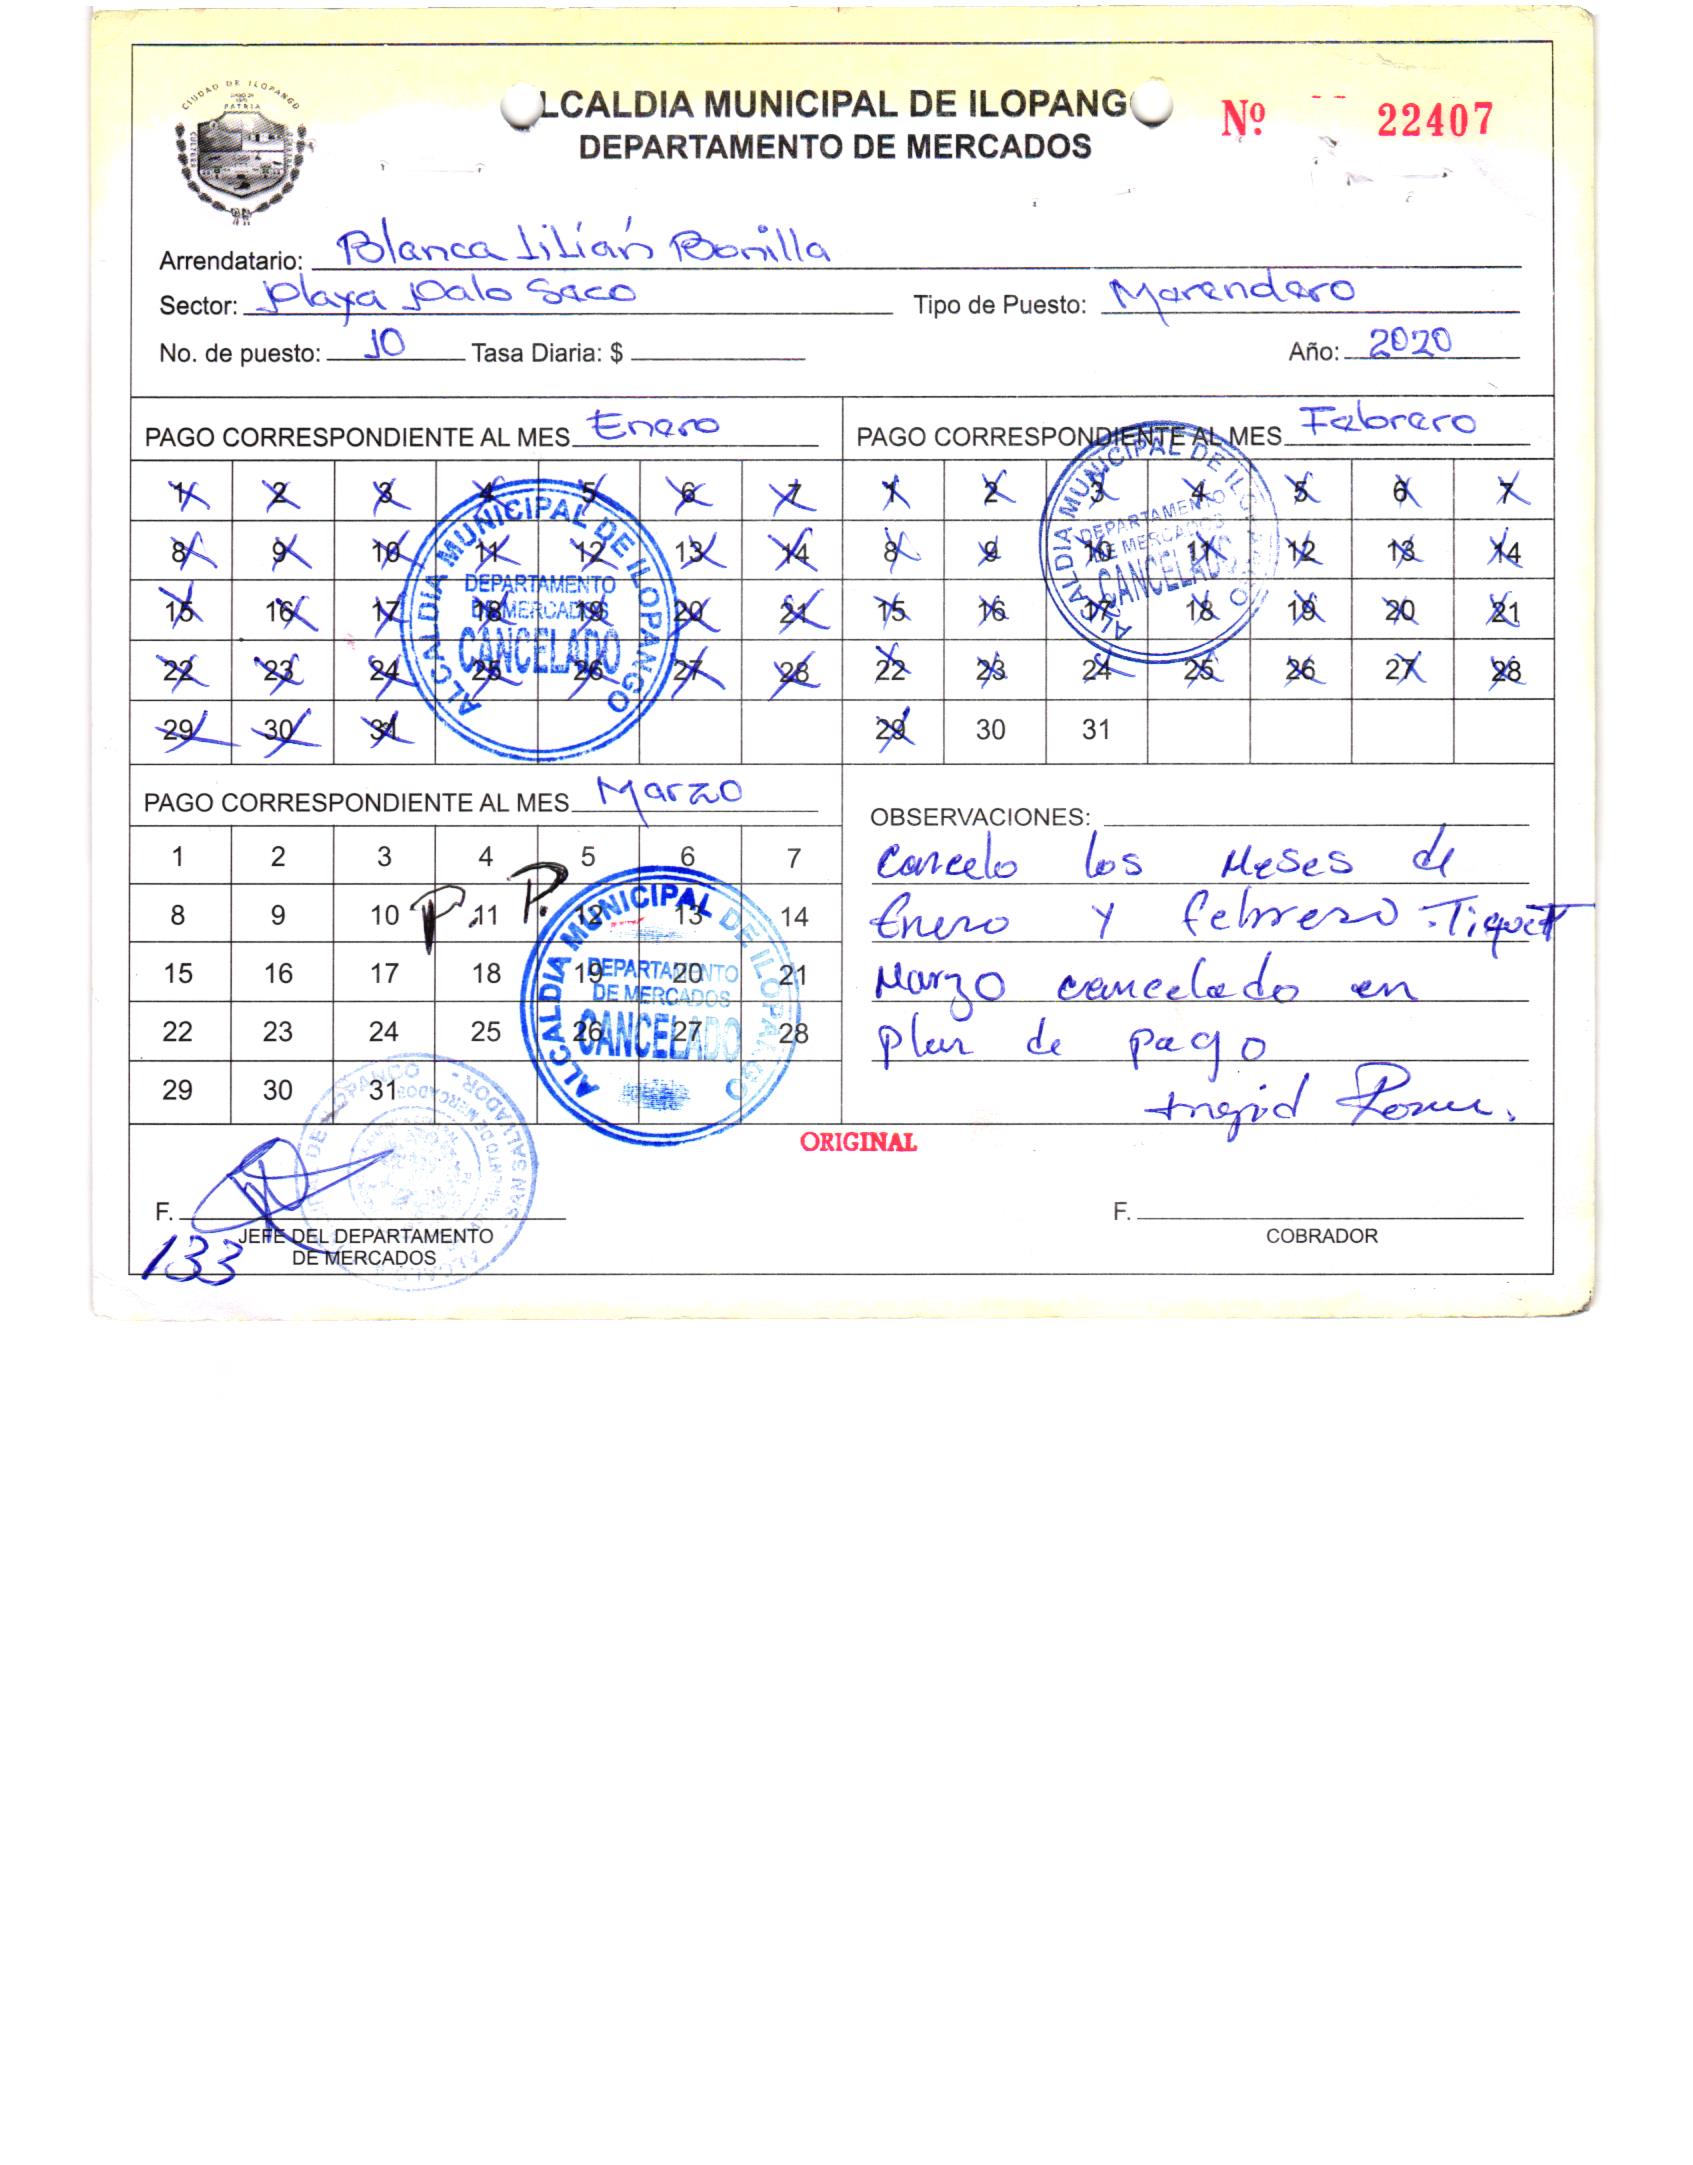 CIUDAD DE ILOPANGO
PATRIA
ALCALDIA MUNICIPAL DE ILOPANGO
DEPARTAMENTO DE MERCADOS
Nº 22407
Arrendatario: Blanca Lilián Bonilla
Sector: Playa Palo Seco
Tipo de Puesto: Merendero
No. de puesto: 10 Tasa Diaria: $
Año: 2020
PAGO CORRESPONDIENTE AL MES Enero
1 2 3 4 5 6 7
8 9 10 11 12 13 14
15 16 17 18 19 20 21
22 23 24 25 26 27 28
29 30 31
ALCALDIA MUNICIPAL DE ILOPANGO
DEPARTAMENTO
DE MERCADOS
CANCELADO
PAGO CORRESPONDIENTE AL MES Febrero
1 2 3 4 5 6 7
8 9 10 11 12 13 14
15 16 17 18 19 20 21
22 23 24 25 26 27 28
29 30 31
ALCALDIA MUNICIPAL DE ILOPANGO
DEPARTAMENTO
DE MERCADOS
CANCELADO
PAGO CORRESPONDIENTE AL MES Marzo
1 2 3 4 5 6 7
8 9 10 11 12 13 14
15 16 17 18 19 20 21
22 23 24 25 26 27 28
29 30 31
P. P.
ALCALDIA MUNICIPAL DE ILOPANGO
DEPARTAMENTO
DE MERCADOS
CANCELADO
OBSERVACIONES:
Cancelo los Meses de
Enero y febrero. Tiquet
Marzo cancelado en
plan de pago
Ingrid
ORIGINAL
F.
JEFE DEL DEPARTAMENTO
DE MERCADOS
133
F.
COBRADOR